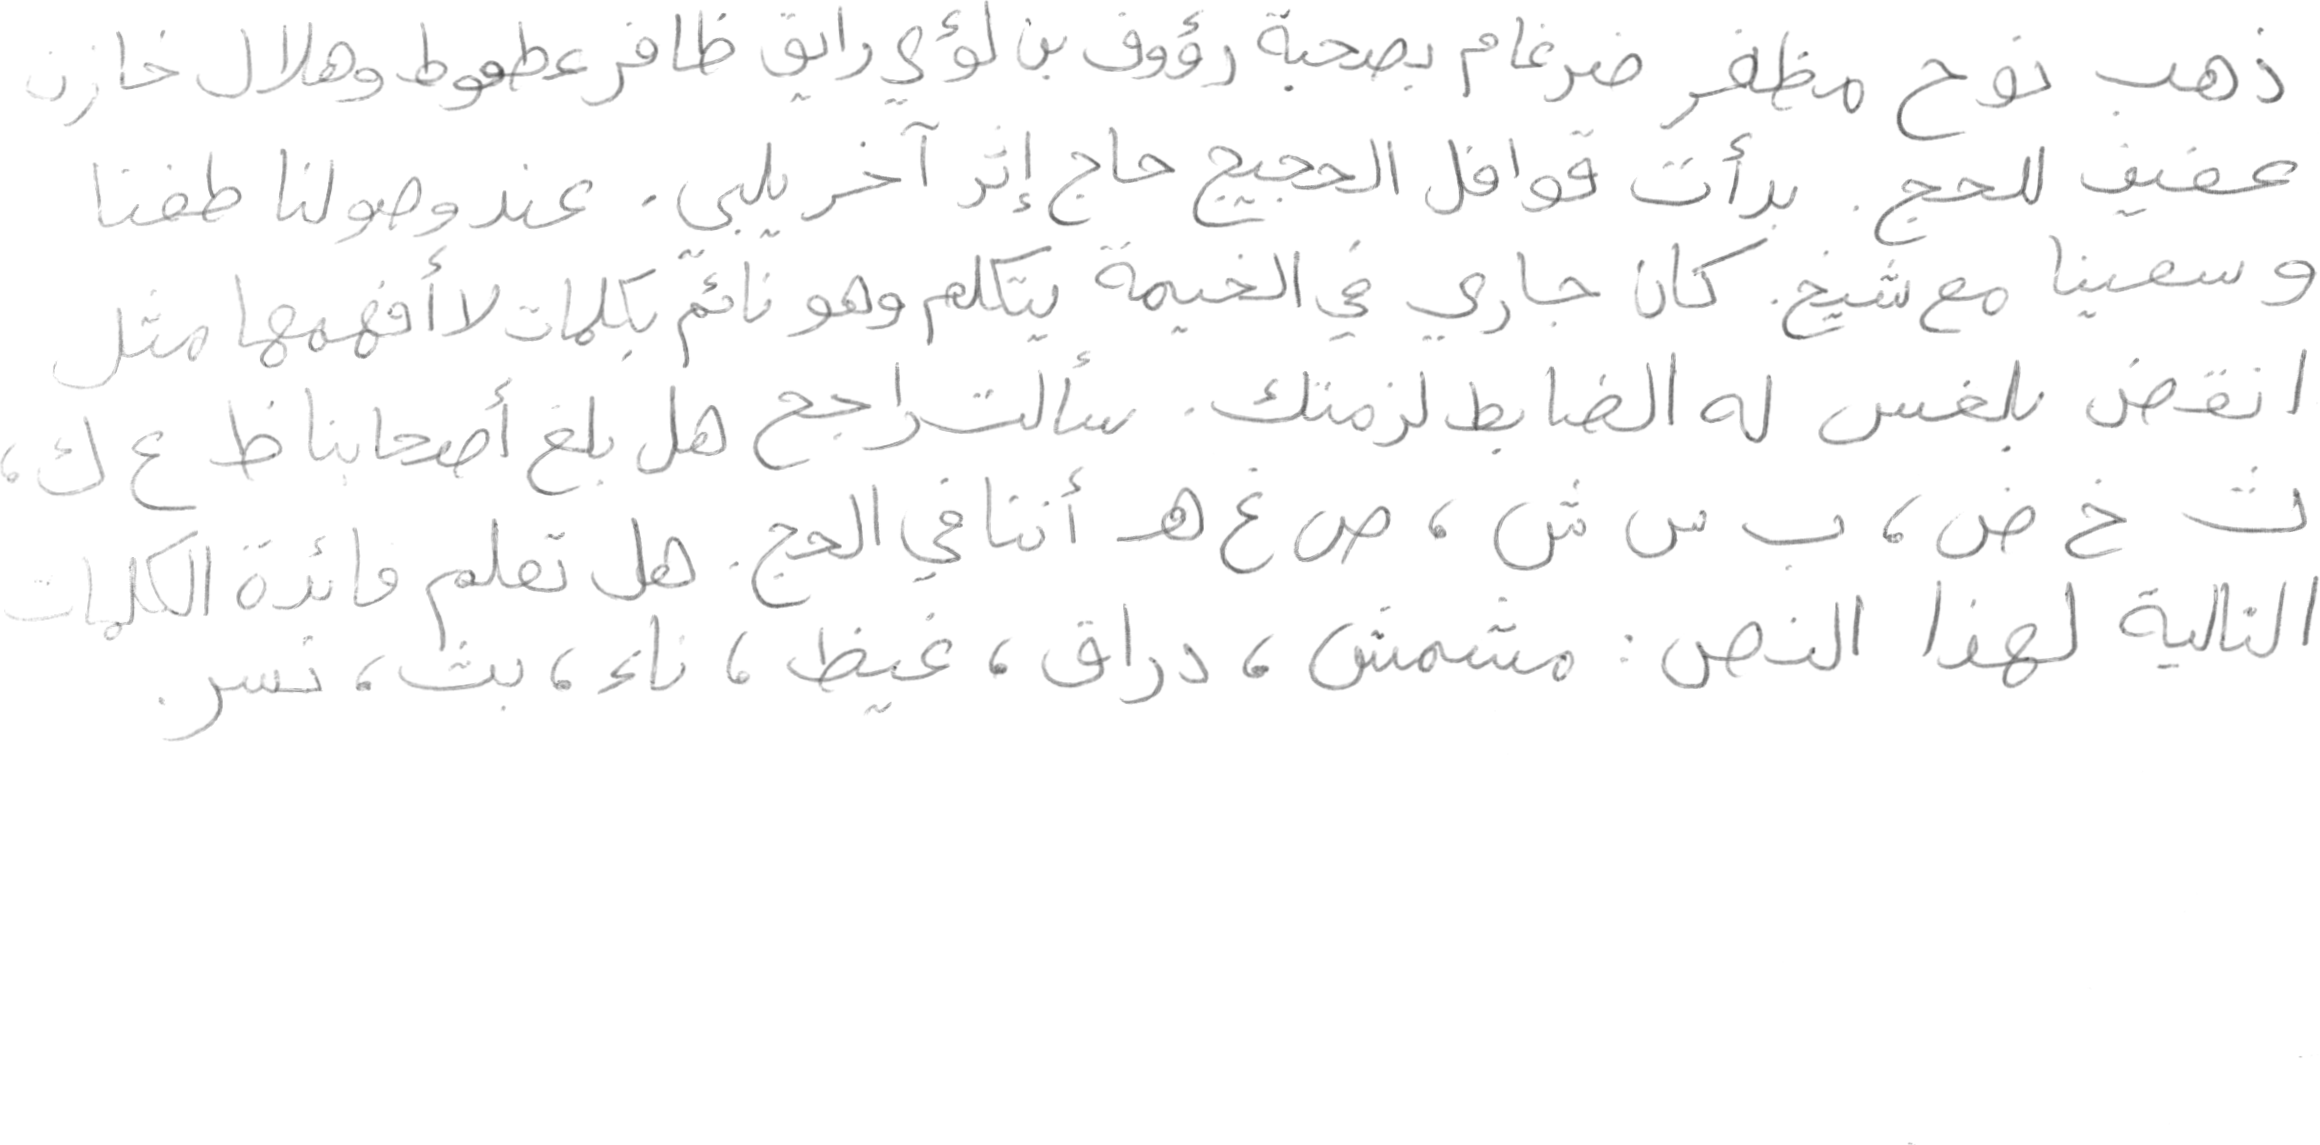 ذهب نوح مظفر ضرغام بصحبة رؤوف بن لؤي رايق ظافر عطعوط وهلال خازن
عفيف للحج. بدأت قوافل الحجيج حاج إثر آخر يلبي. عند وصولنا طفنا
وسعينا مع شيخ. كان جاري في الخيمة يتكلم وهو نائم بكلمات لا أفهمها مثل
انقض بلغس له الضابط لزمتك. سألت راجح هل بلغ أصحابنا ظ ع ك،
ث خ ض، ب س ش، ص غ هـ أننا في الحج. هل تعلم فائدة الكلمات
التالية لهذا النص: مشمش، دراق، غيظ، ناء، بث، نسر.